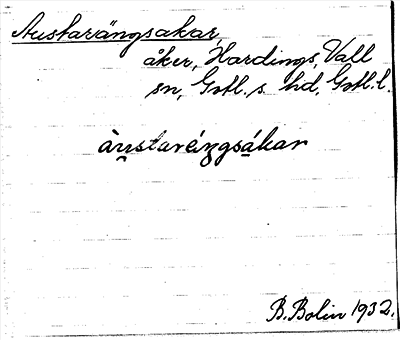 Austarängsakar
åker, Hardings, Vall
sn, Gotl. s. hd, Gotl. l.
àu̯staréŋgsákar
B. Bolin 1932.